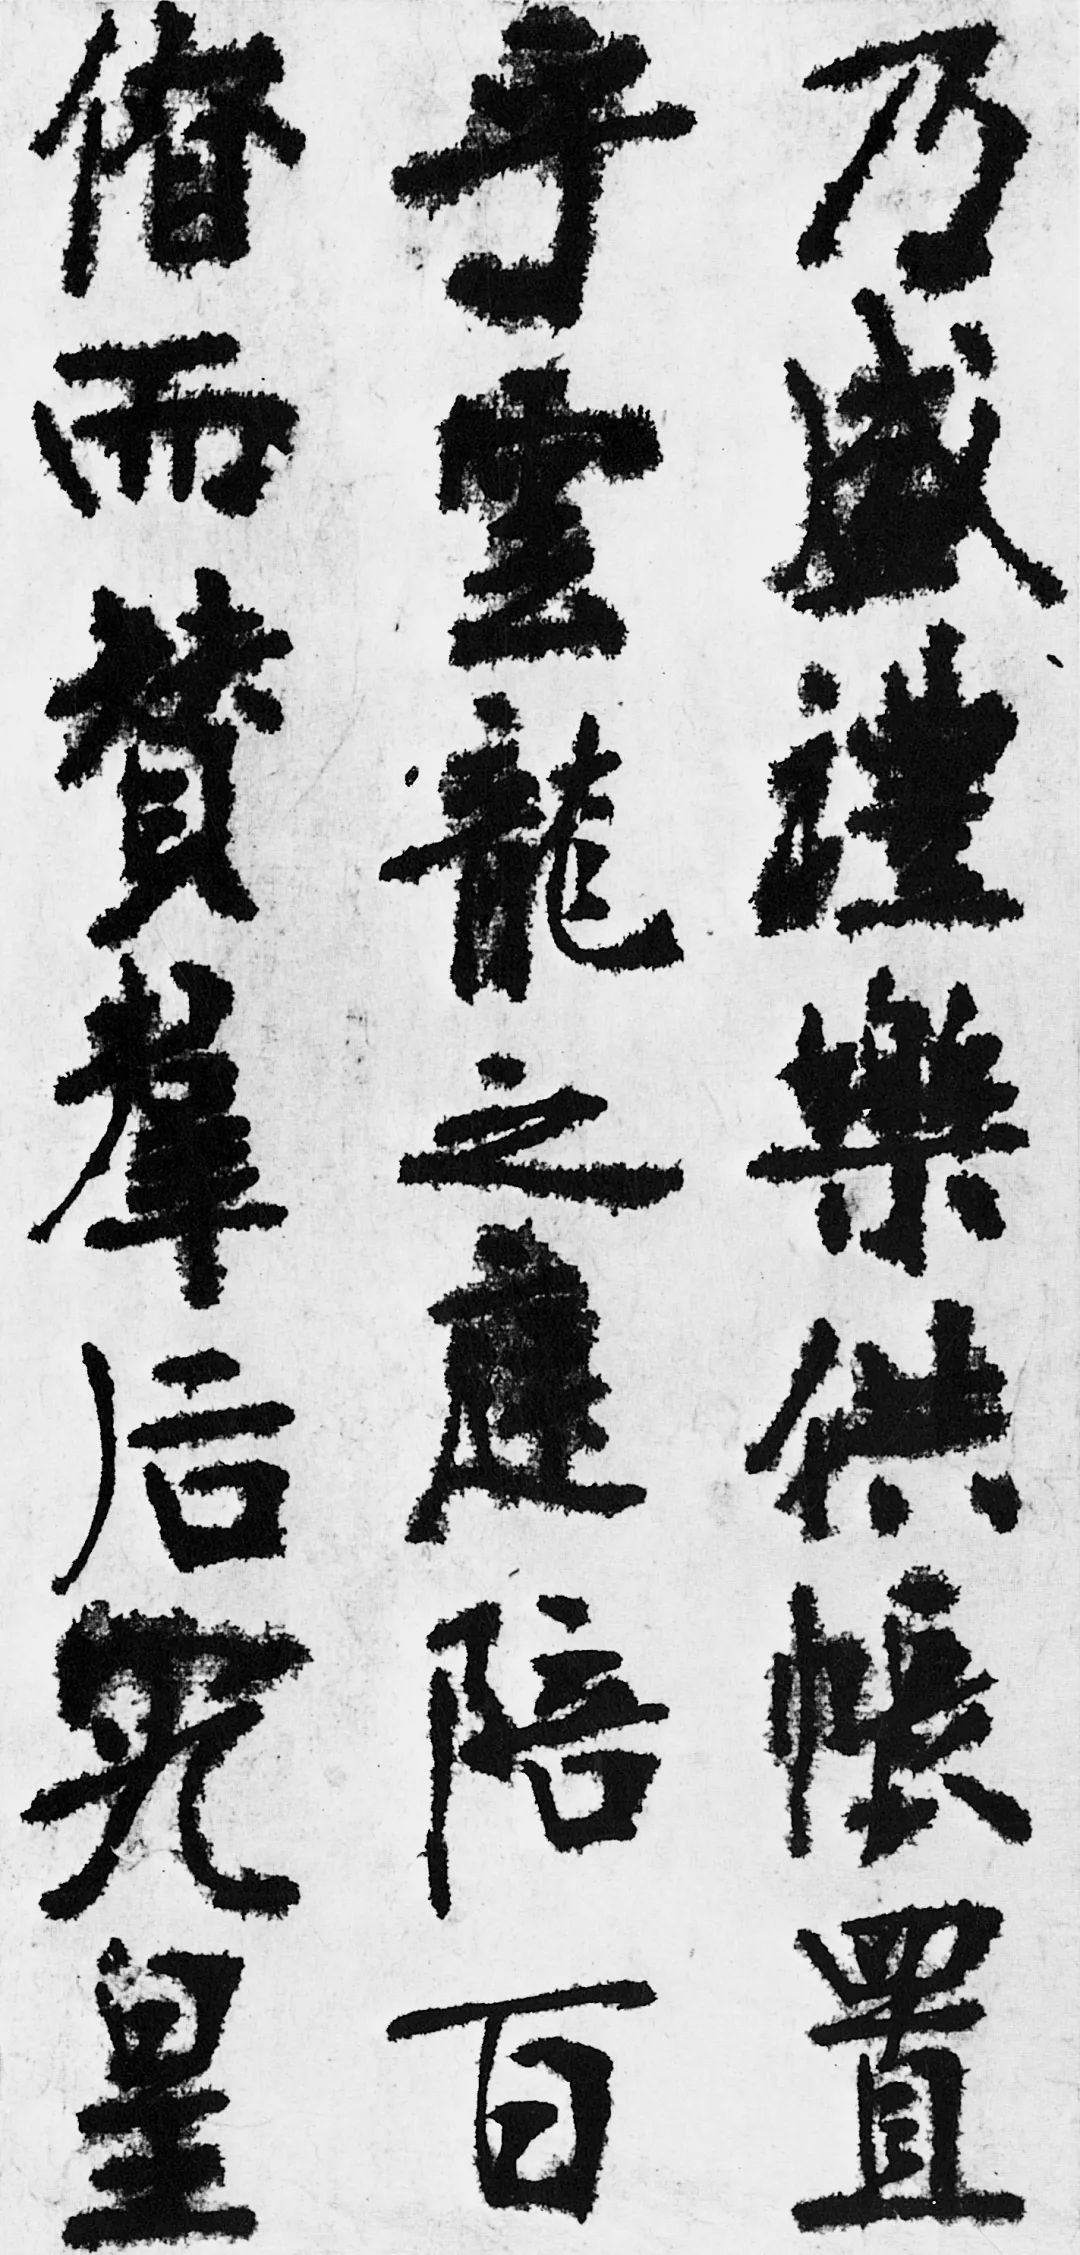 乃盛禮樂供帳置
乎雲龍之庭陪百
僚而贊羣后究皇